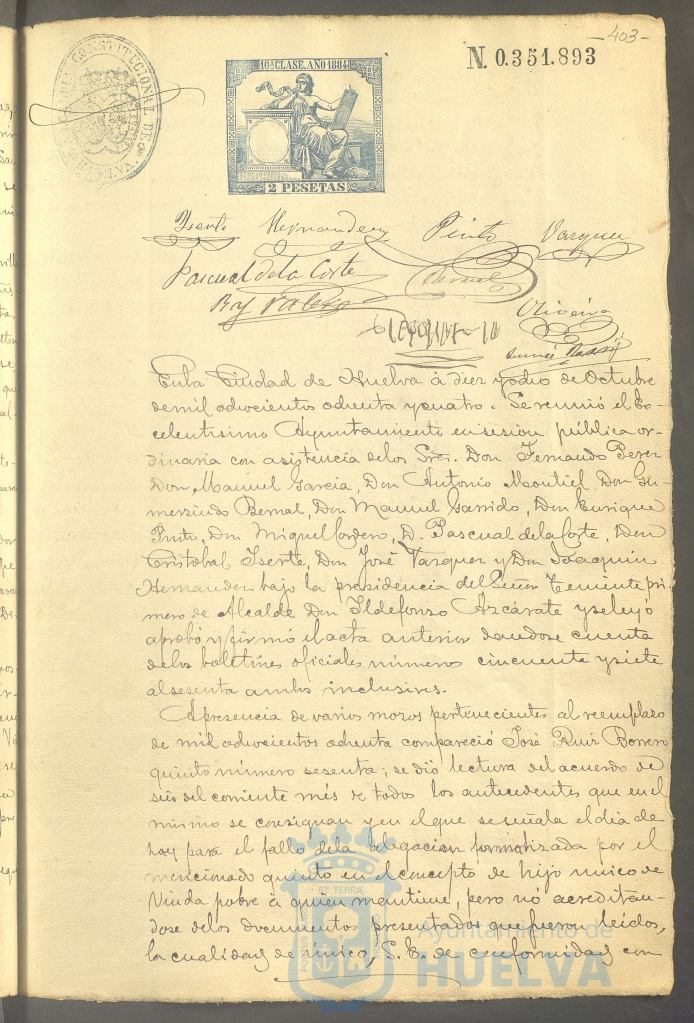 -403-
N. 0.351.893
CONSTITUCIONAL DE
HUELVA
10ª CLASE. AÑO 1884
2 PESETAS
Iserte Hernandez Pinto Vazquez
Pascual de la Corte Bernal
Oliveira
En la Ciudad de Huelva á diez y ocho de Octubre
de mil ochocientos ochenta y cuatro. Se reunió el Ex-
celentisimo Ayuntamiento en sesión pública or-
dinaria con asistencia de los Sres. Don Fernando Perez
Don Manuel Garcia, Don Antonio Montiel, Don Gu-
mersindo Bernal, Don Manuel Garrido, Don Enrique
Pinto, Don Miguel Cordero, D. Pascual de la Corte, Don
Cristobal Iserte, Don José Vazquez y Don Joaquin
Hernandez bajo la presidencia del Señor Teniente pri-
mero de Alcalde Don Ildefonso Azcárate y se leyó
aprobó y firmó el acta anterior dandose cuenta
de los boletines oficiales números cincuenta y siete
al sesenta ambos inclusives.
A presencia de varios mozos pertenecientes al reemplazo
de mil ochocientos ochenta compareció José Ruiz Borrero
quinto número sesenta; se dió lectura del acuerdo de
seis del corriente més de todos los antecedentes que en el
mismo se consignan y en el que se señala el dia de
hoy para el fallo de la alegación formalizada por el
mencionado quinto en el concepto de hijo unico de
Viuda pobre á quien mantiene, pero nó acreditan-
dose de los documentos presentados que fueron leidos,
la cualidad de único, S. E. de conformidad con
Ayuntamiento de
HUELVA